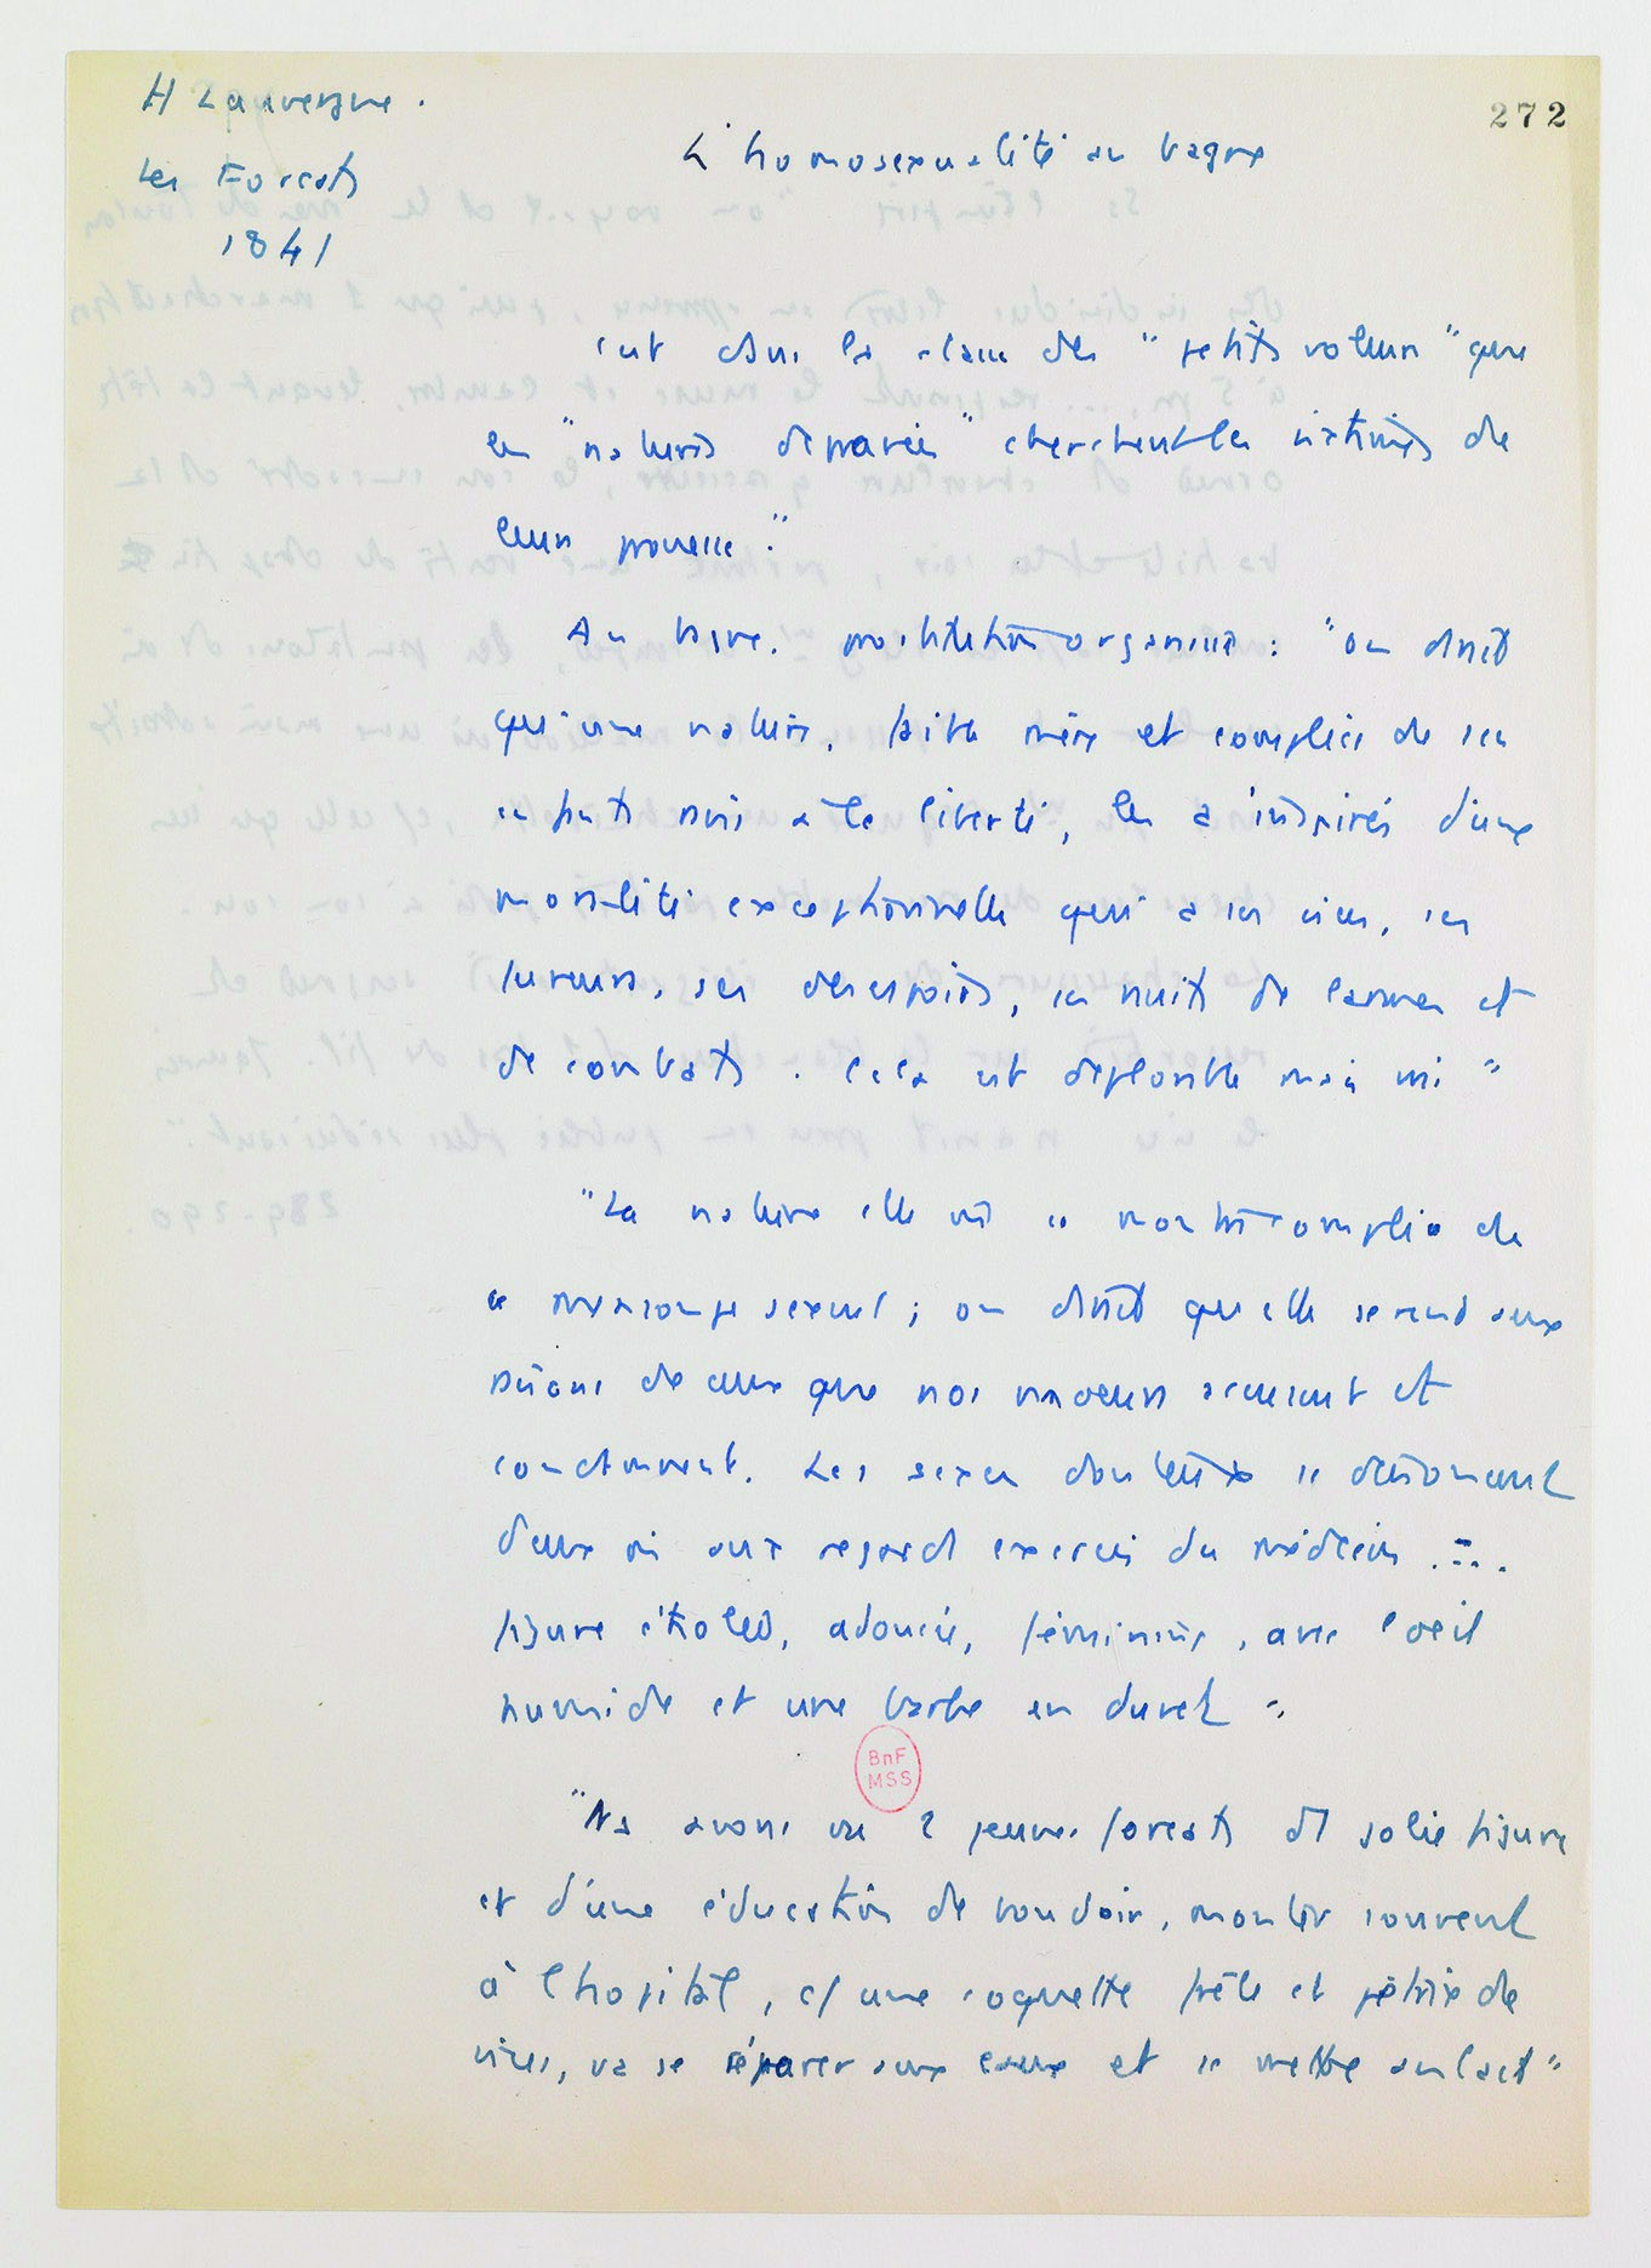 H Lauvergne.
Les Forçats
1841
272
L'homosexualité au bagne
C'est dans la classe des "petits voleurs" que
les "natures dépravées" cherchent les victimes de
leurs
Au bagne. prostitution organisée : "on dirait
qu'une nature, faite mère et complice de ses
enfants nés à la liberté, les a inspirés d'une
moralité exceptionnelle qui a ses vices, ses
fureurs, ses désespoirs, ses nuits de larmes et
de combats. Cela est déplorable mais vrai"
"La nature elle même se montre complice de
ce mensonge sexuel ; on dirait qu'elle se rend aux
raisons de ceux que nos moeurs accusent et
condamnent. Les sexes douteux se
d'eux mêmes aux regards exercés du médecin ....
figure étiolée, adoucie, féminine, avec l'oeil
humide et une barbe en duvet".
BnF
MSS
"Ns avons vu 2 jeunes forçats de jolie figure
et d'une éducation de boudoir, monter souvent
à l'hôpital, c/ une coquette frêle et pétrie de
vices, va se réparer aux eaux et se mettre au lait"